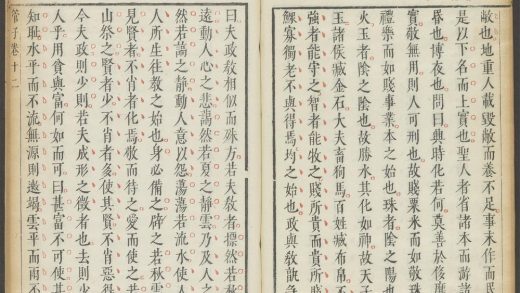 敝也地重人載毀敝而養不足事末作而民
是以下名而上實也聖人者省諸本而游諸
昬也博夜也問曰興時化若何莫善於侈靡
實敬無用則人可刑也故賤粟米而如敬
禮樂而如賤事業本之始也珠者陰之陽也
火玉者陰之陰也故勝水其化如神故天子
玉諸侯臧金石大夫畜狗馬百姓臧布帛
強者能守之智者能牧之賤所貴而貴所賤
鰥寡獨老不與得焉均之始也政與教孰急
曰夫政教相似而殊方若夫教者摽然若
遠動人心之悲藹然若夏之靜雲乃及人之
然若謞之靜動人意以怨蕩蕩若流水使人
人所生往教之始也身必備之辟之若秋雲
見賢者不肖者化焉敬而待之愛而使之若
山祭之賢者少不肖者多使其賢不肖惡
今夫政則少則若夫成形之徵者也去則少
人乎用貧與富何如而可曰甚富不可使甚
知耻水平而不流無源則遬竭雲平而雨不
管子卷十二